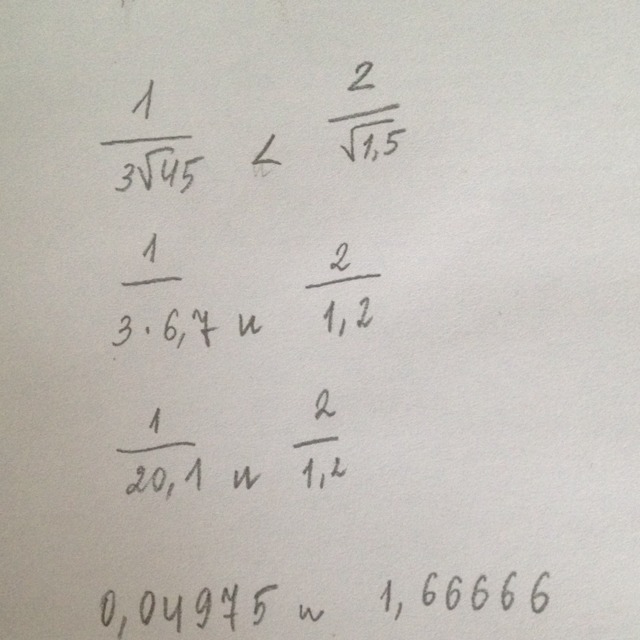 1/(3√45) < 2/√1,5
1/(3·6,7) и 2/1,2
1/20,1 и 2/1,2
0,04975 и 1,66666